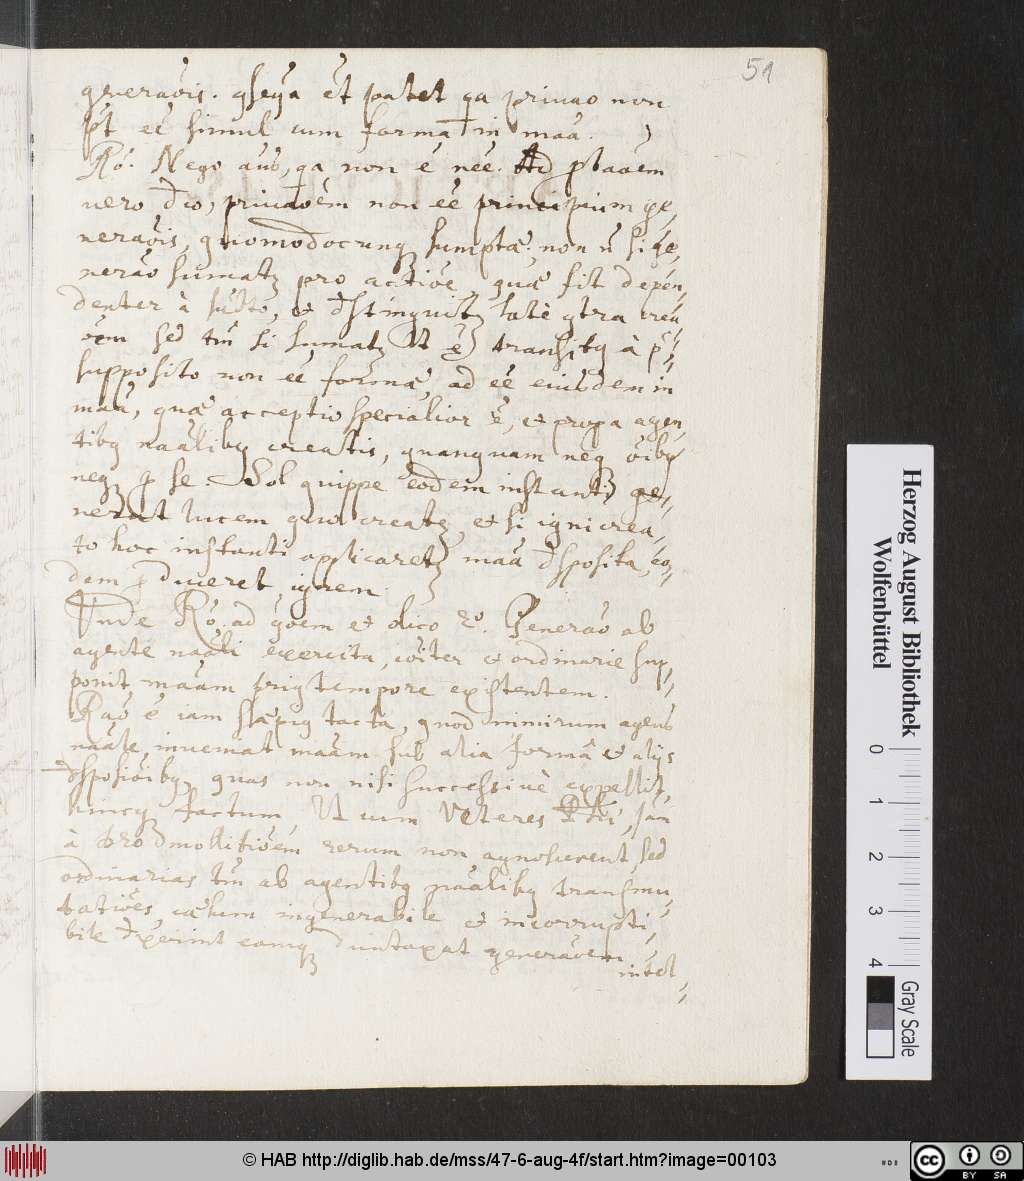 51
generaõis. gseqa êt patet qa privaõ non
pt eê simul cum forma in maã.
Rõ. Nego aũs, qa non ê neê. Ad pbaõem
vero dico, privaõem non eê principium ge,
neraõis, quomodocunq sumptæ; non n si ge,
neraõ sumatz pro actiõe, quæ fit depen,
denter à subto, et distinguitz latè gtra crea,
õem sed tm si sumatz ut ê transitq à
supposito non eê formæ, ad eê eiusdem in
maã, quæ acceptio specialior ê, et propa agen,
tibq naãlibq creatis, quanquam neq õibq
neq p se. Sol quippe eodem instanti ge,
nerat lucem quo createz, et si igni crea,
to hoc instanti applicaretz maã disposita, eo,
dem pduceret ignem.
Unde Rõ. ad qõem et dico 2º. Generaõ ab
agente naãli exercita, cõiter et ordinarie sup,
ponit maãm priq tempore existentem.
Raõ ê iam sæpiq tacta, quod nimirum agens
naãle, inveniat maãm sub alia formâ et alijs
dispositiõibq, quas non nisi successivè expellit,
hincq factum, Ut cum Veteres Phi,
à molitiõem rerum non agnoscerent, sed
ordinarias tm ab agentibq naãlibq transmu,
tatiões, cælum ingenerabile et incorrupti,
bile dixerint eamq duntaxat generaõem
intel,
Herzog August Bibliothek
Wolfenbüttel
0 1 2 3 4
Gray Scale
© HAB http://diglib.hab.de/mss/47-6-aug-4f/start.htm?image=00103
HAB
cc BY SA